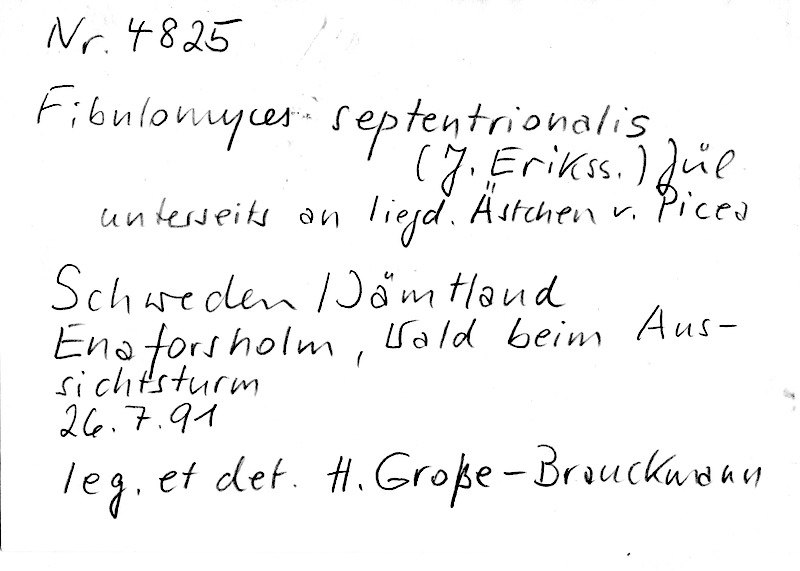 Nr. 4825
Fibulomyces septentrionalis
(J. Erikss.) Jül
unterseits an liegd. Ästchen v. Picea
Schweden / Jämtland
Enaforsholm, Wald beim Aus-
sichtsturm
26.7.91
leg. et det. H. Große-Brauckmann